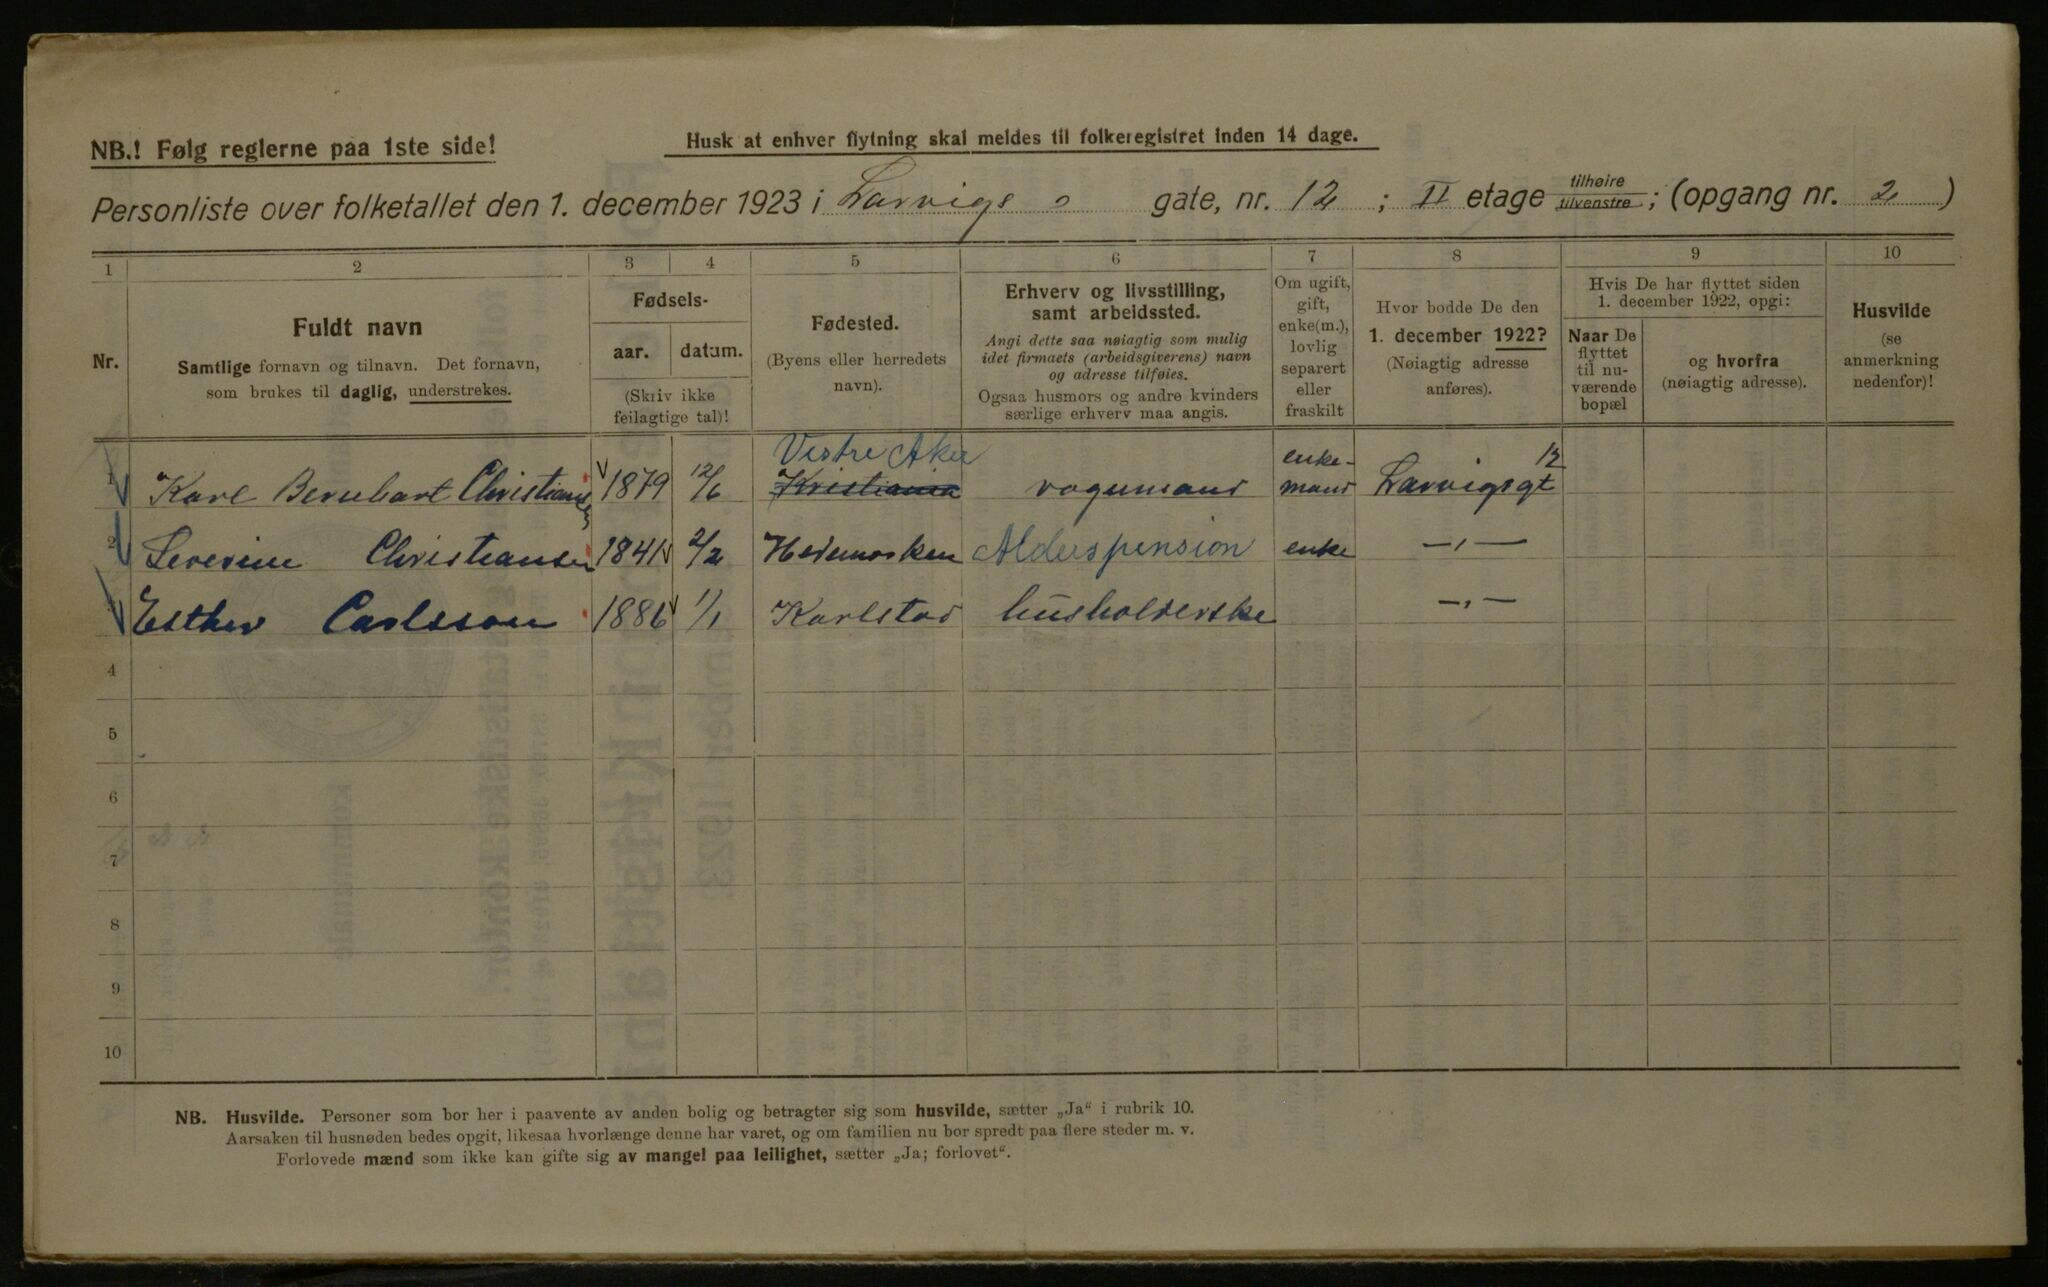 NB.! Følg reglerne paa 1ste side!
Husk at enhver flytning skal meldes til folkeregistret inden 14 dage.
Personliste over folketallet den 1. december 1923 i Larvigs gate, nr. 12 ; II etage tilhøire tilvenstre ; (opgang nr. 2 )
1 2 3 4 5 6 7 8 9 10
Nr.
Fuldt navn
Samtlige fornavn og tilnavn. Det fornavn,
som brukes til daglig, understrekes.
Fødsels-
aar. datum.
(Skriv ikke
feilagtige tal)!
Fødested.
(Byens eller herredets
navn).
Erhverv og livsstilling,
samt arbeidssted.
Angi dette saa nøiagtig som mulig
idet firmaets (arbeidsgiverens) navn
og adresse tilføies.
Ogsaa husmors og andre kvinders
særlige erhverv maa angis.
Om ugift,
gift,
enke(m.),
lovlig
separert
eller
fraskilt
Hvor bodde De den
1. december 1922?
(Nøiagtig adresse
anføres).
Hvis De har flyttet siden
1. december 1922, opgi:
Naar De
flyttet
til nu-
værende
bopæl
og hvorfra
(nøiagtig adresse).
Husvilde
(se
anmerkning
nedenfor)!
Vestre Aker
1 Karl Bernhart Christiansen 1879 12/6 Kristiania vognmand enke-mand Larvigsgt 12
2 Severine Christiansen 1841 2/2 Hedemarken Alderspension enke —„—
3 Esther Carlsson 1886 1/1 Karlstad husholderske —„—
4
5
6
7
8
9
10
NB. Husvilde. Personer som bor her i paavente av anden bolig og betragter sig som husvilde, sætter „Ja“ i rubrik 10.
Aarsaken til husnøden bedes opgit, likesaa hvorlænge denne har varet, og om familien nu bor spredt paa flere steder m. v.
Forlovede mænd som ikke kan gifte sig av mangel paa leilighet, sætter „Ja; forlovet“.